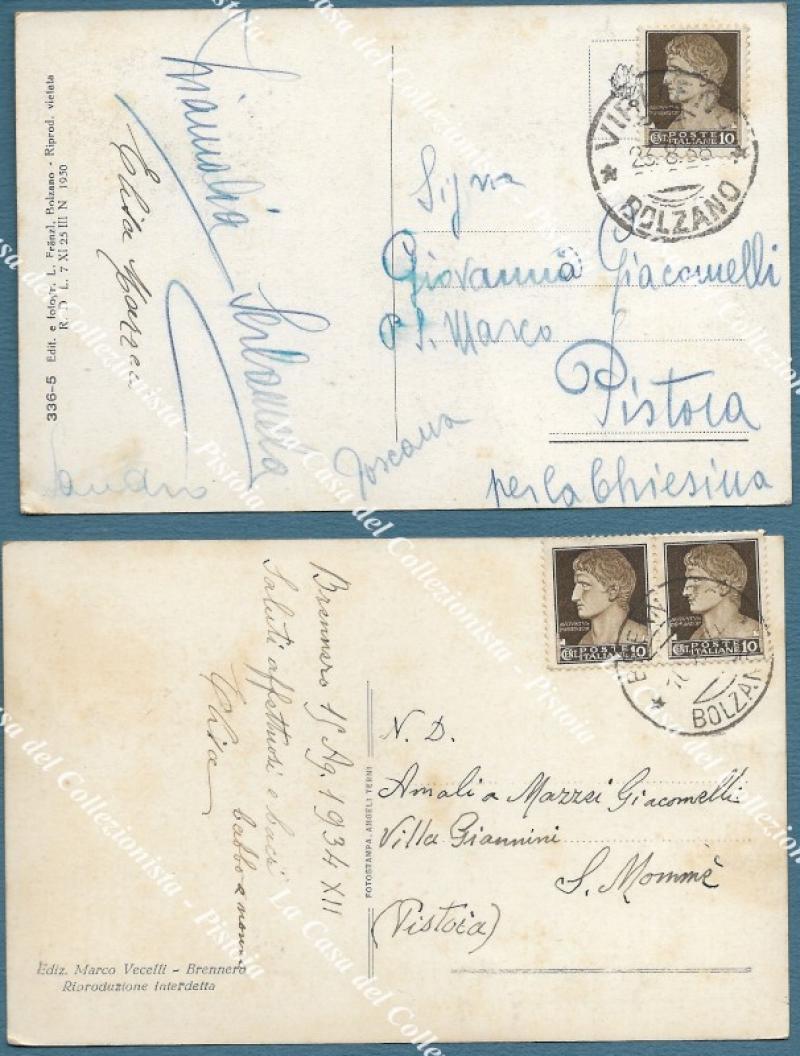 336-5 Edit. e fotogr. L. Fränzl, Bolzano - Riprod. vietata
R. D. L. 7 XI 25 III N 1930
Elisa
POSTE
ITALIANE
CENT. 10
VIPITENO
BOLZANO
Sig.na
Giovanna Giacomelli
P. S. Marco
Pistoia
Toscana
per la Chiesina
Sandro
POSTE
ITALIANE
CENT. 10
POSTE
ITALIANE
CENT. 10
BRENNERO
BOLZANO
Brennero 15 Ag. 1934 XII
Saluti affettuosi e baci
babbo e
Elisa
FOTOSTAMPA ANGELI TERNI
N. D.
Amalia Mazzei Giacomelli
Villa Giannini
S. Mommè
(Pistoia)
Ediz. Marco Vecelli - Brennero
Riproduzione interdetta
La Casa del Collezionista - Pistoia